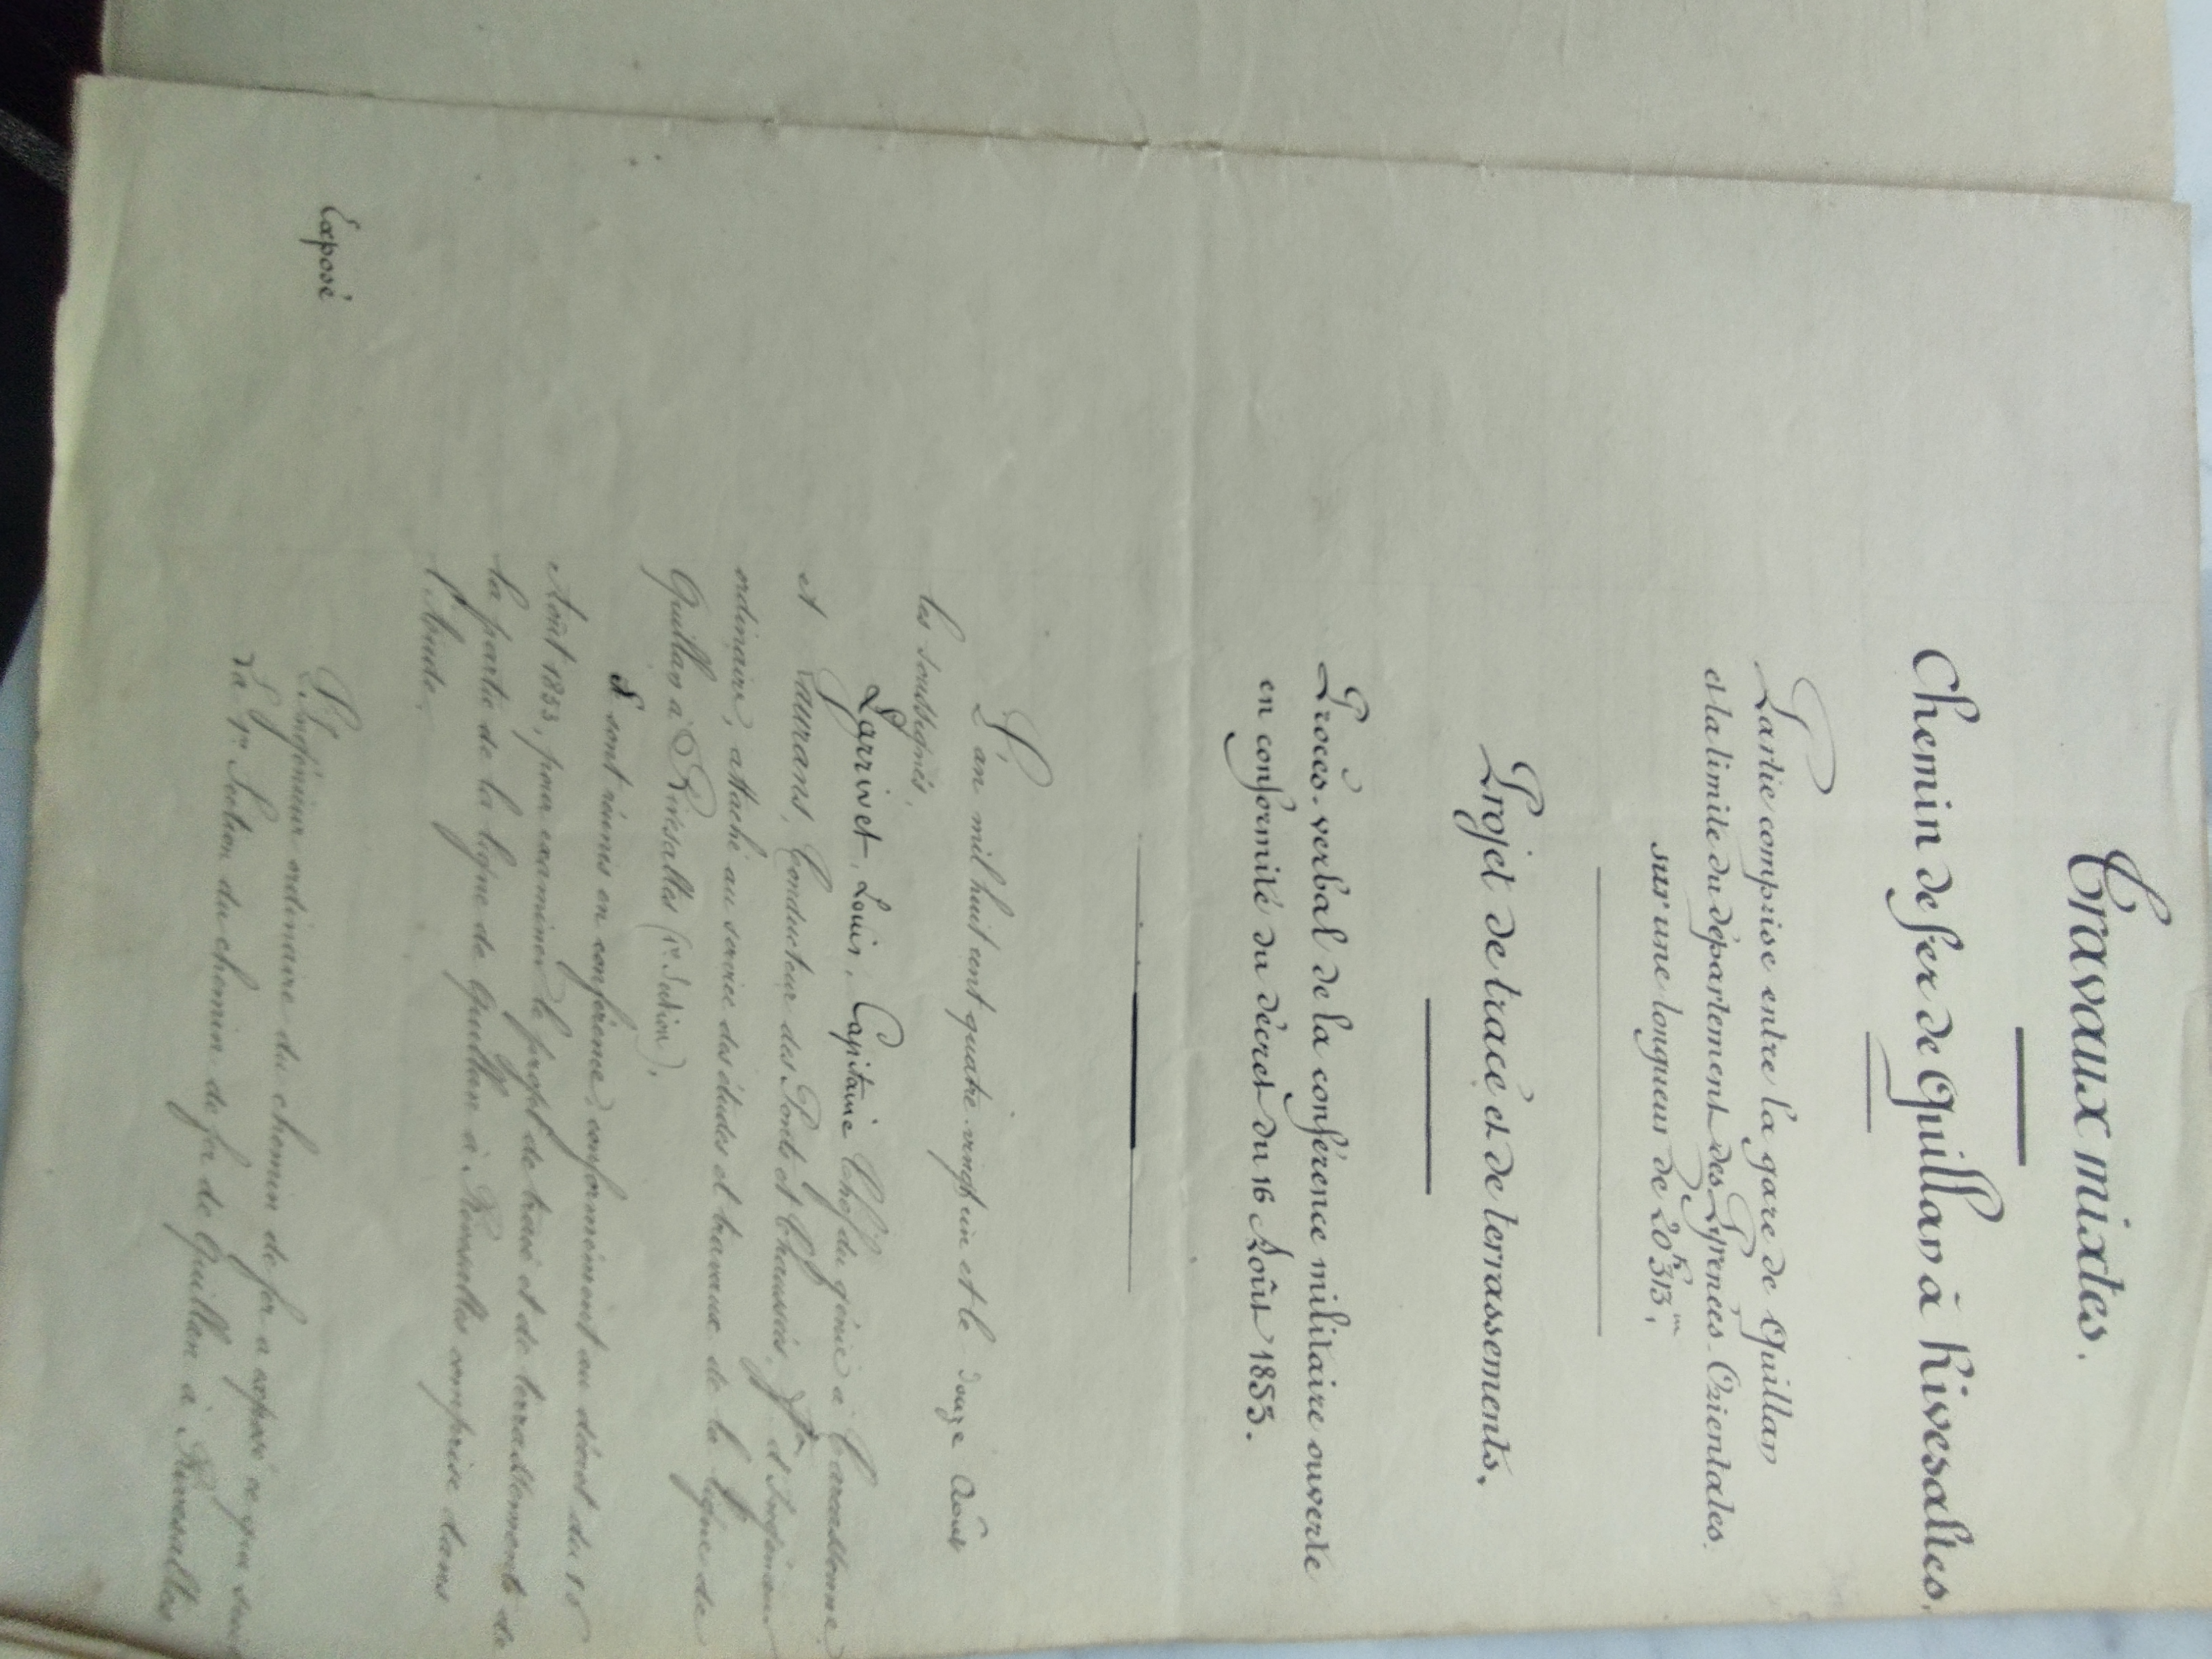 Travaux mixtes.
Chemin de fer de Quillan à Rivesaltes.
Partie comprise entre la gare de Quillan
et la limite du département des Pyrénées-Orientales.
sur une longueur de 20k313m,
Projet de tracé et de terrassements.
Procès-verbal de la conférence militaire ouverte
en conformité du décret du 16 Août 1853.
L'an mil huit cent quatre-vingt un et le douze Août
les soussignés,
Larrivet, Louis, Capitaine Chef du génie à Carcassonne.
et Laurans, Conducteur des Ponts et Chaussées, fon d'Ingénieur
ordinaire, attaché au service des études et travaux de la ligne de
Quillan à Rivesaltes (1re Section),
Se sont réunis en conférence, conformément au décret du 16
Août 1853, pour examiner le projet de tracé et de terrassements de
la partie de la ligne de Quillan à Rivesaltes comprise dans
l'Aude.
Exposé
L'Ingénieur ordinaire du chemin de fer a exposé ce qui suit
La 1re Section du chemin de fer de Quillan à Rivesaltes